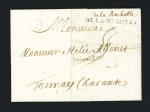 De la Rochelle
DE LA ROCHELLE
A Monsieur
Monsieur Helie
Tonnay Charante